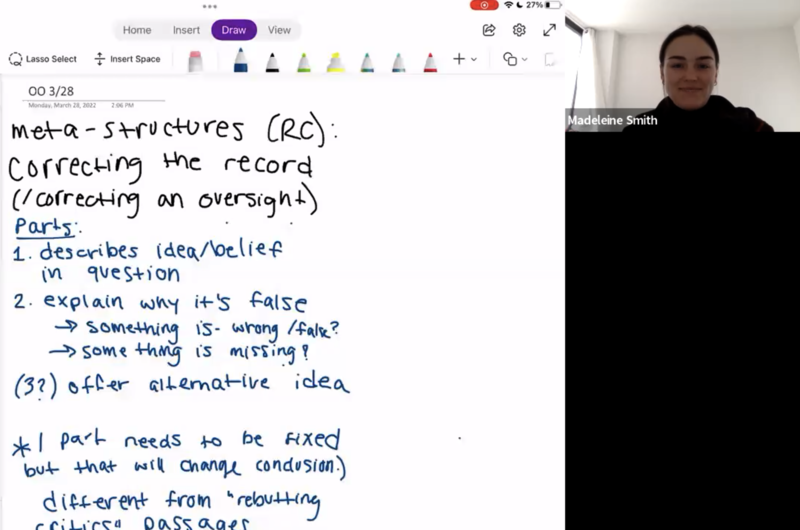 27%
Home Insert Draw View
Lasso Select Insert Space
OO 3/28
Monday, March 28, 2022 2:06 PM
Madeleine Smith
meta-structures (RC):
correcting the record
(/correcting an oversight)
Parts:
1. describes idea/belief
in question
2. explain why it's false
→ something is wrong/false?
→ something is missing?
(3?) offer alternative idea
* 1 part needs to be fixed
but that will change conclusion.)
different from "rebutting
critics" passages